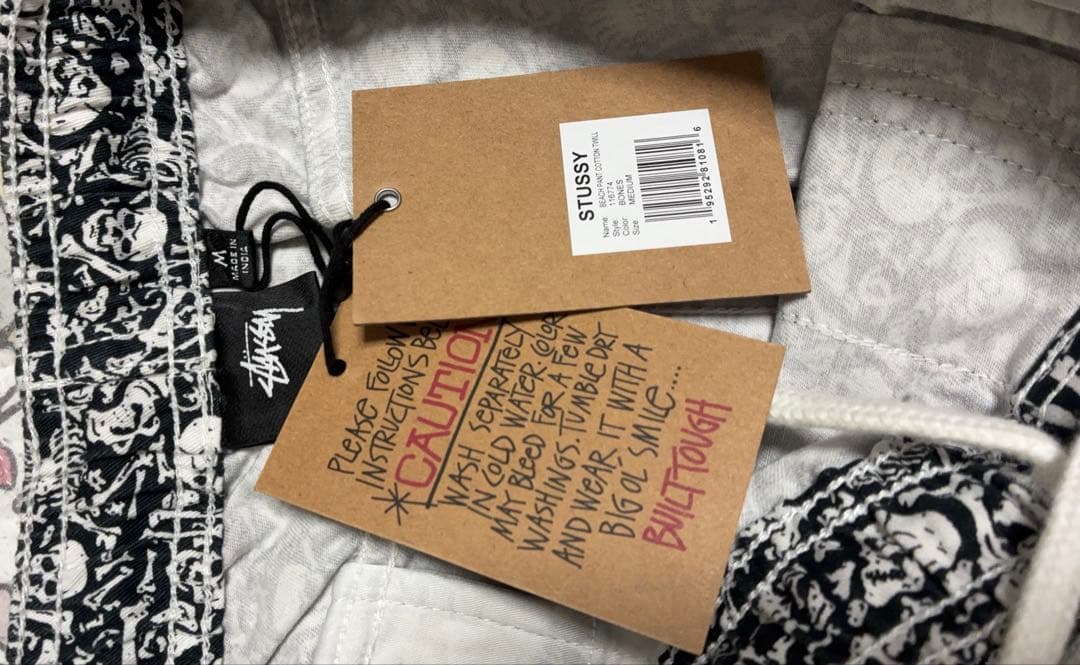 STUSSY
Name BEACH PANT COTTON TWILL
Style 116774
Color BONES
Size MEDIUM
1 95292 81081 6
M
MADE IN
INDIA
Stüssy
PLEASE FOLLOW
INSTRUCTIONS
*CAUTION
WASH SEPARATELY
IN COLD WATER COLOR
MAY BLEED FOR A FEW
WASHINGS. TUMBLE DRY
AND WEAR IT WITH A
BIG OL' SMILE.....
BUILT TOUGH